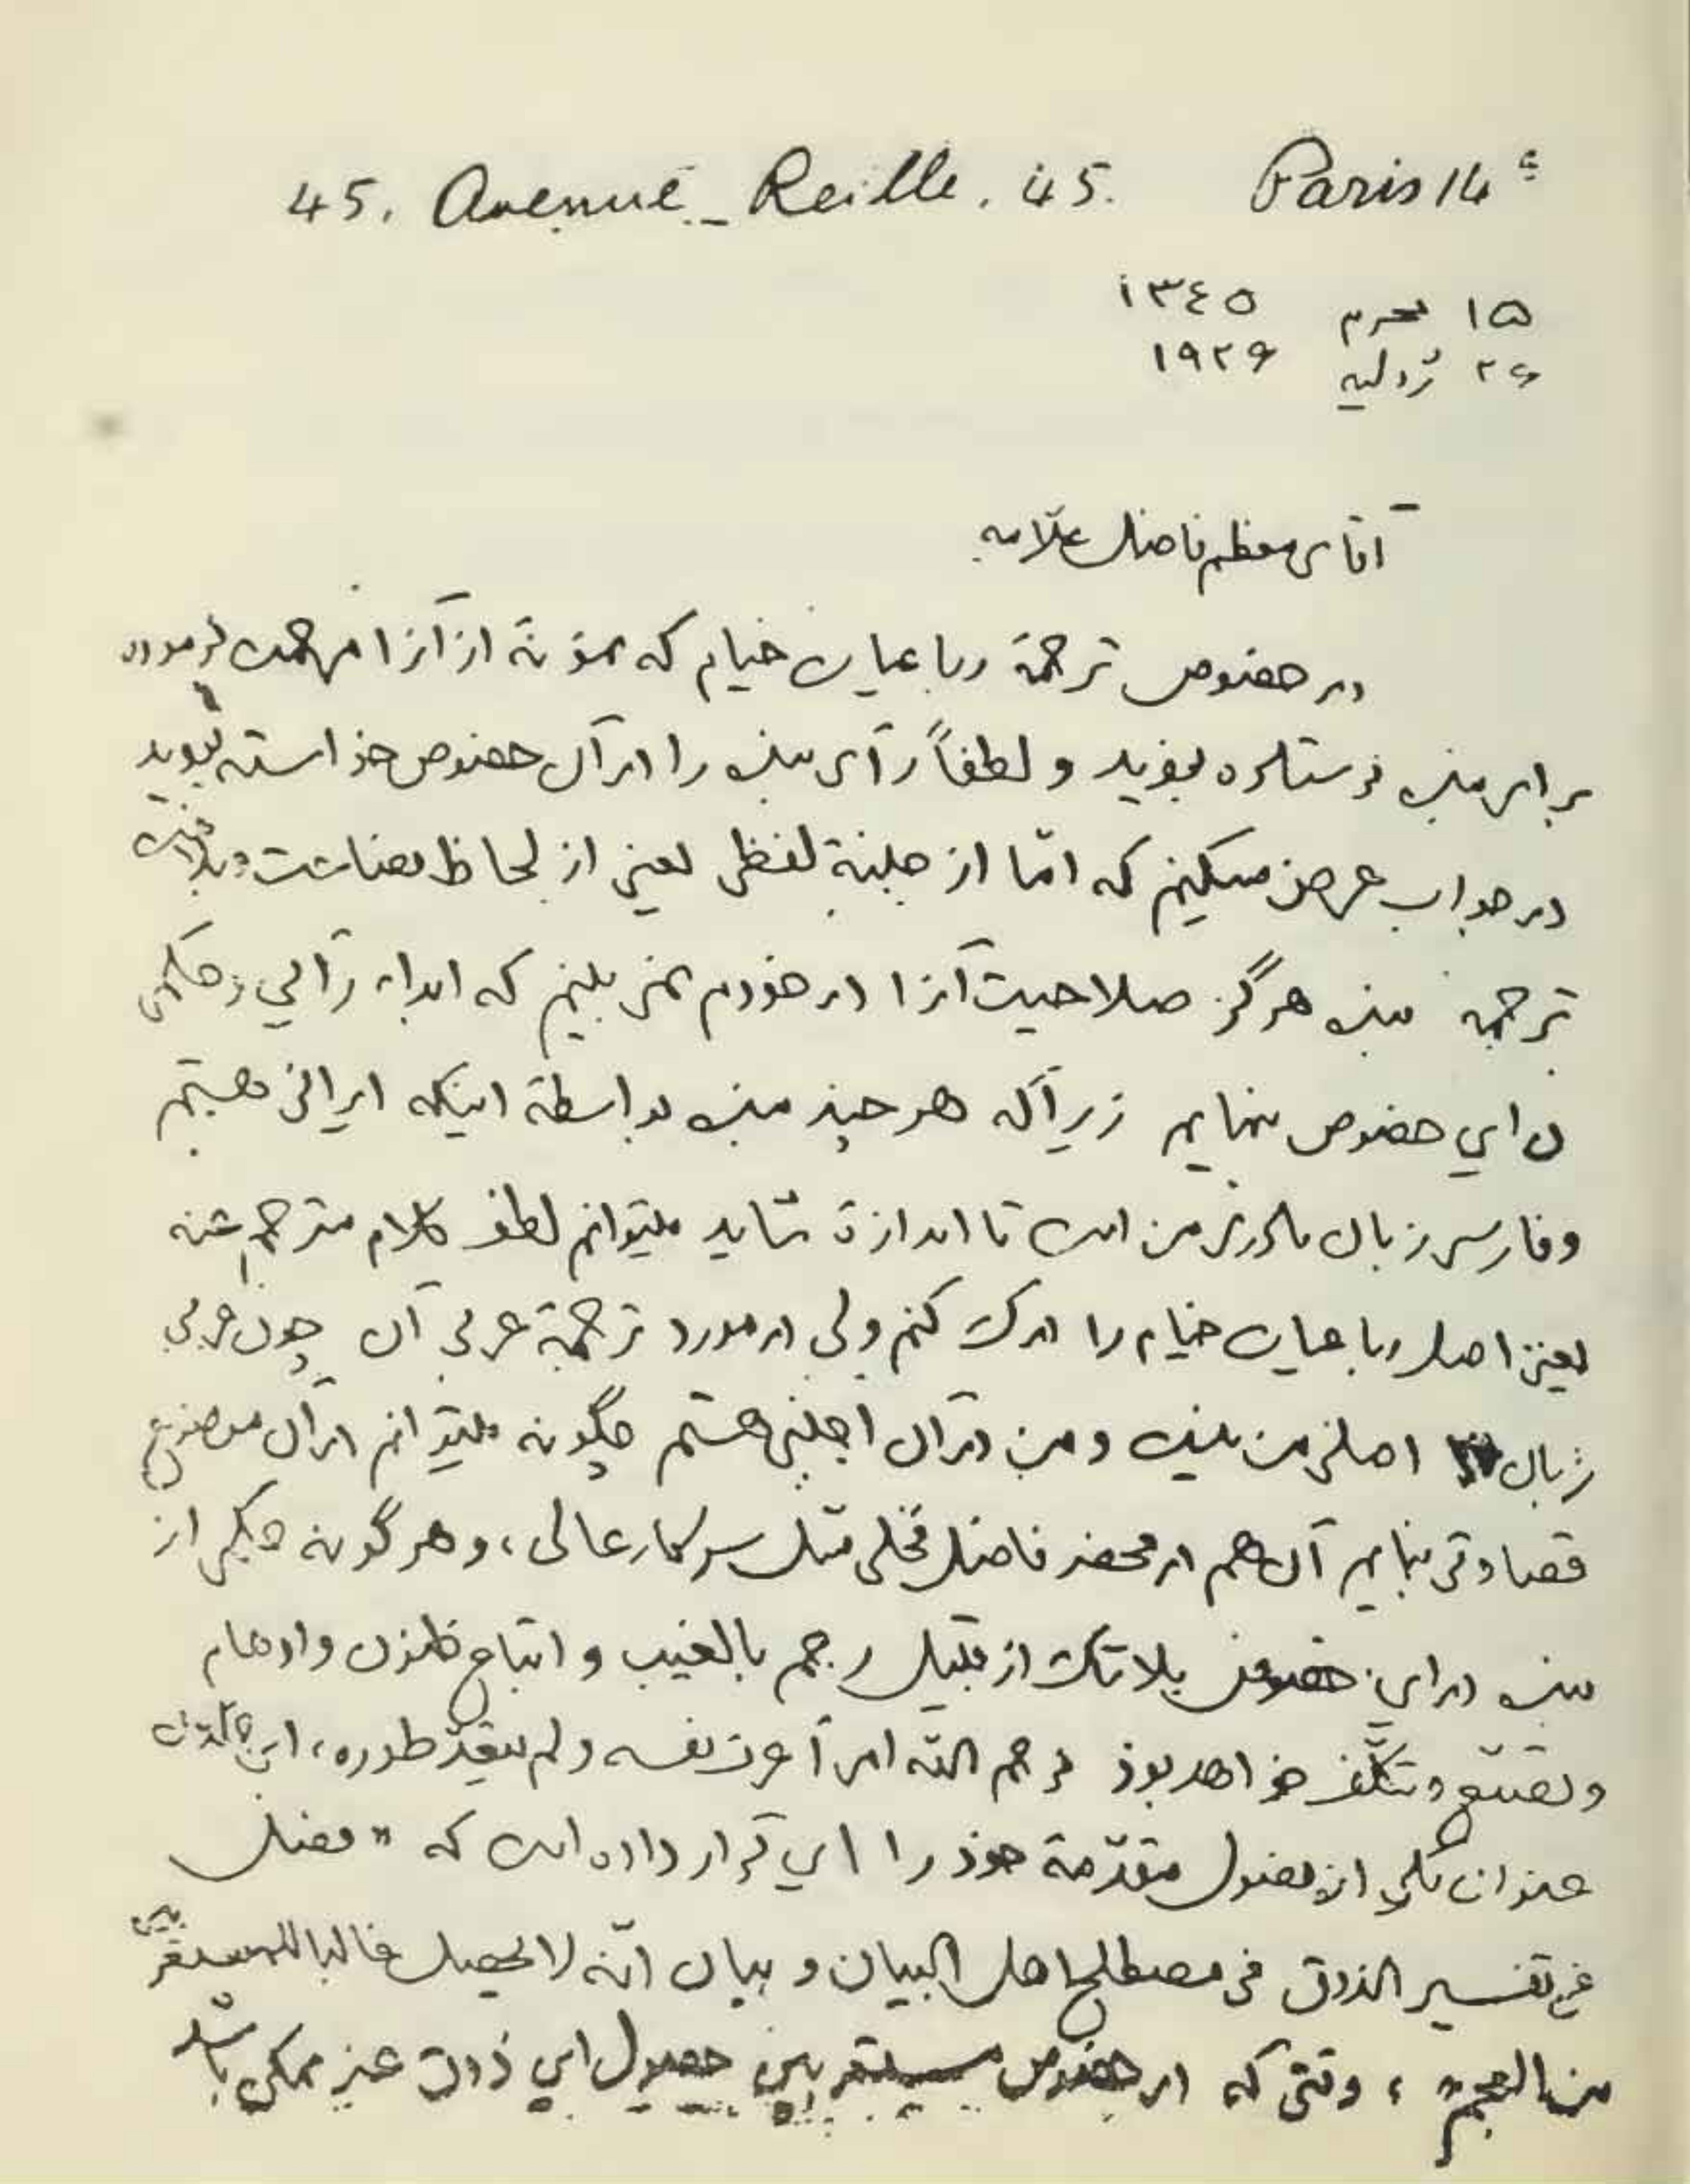 45. Avenue Reille. 45. Paris 14e
۱۵ محرم ۱۳٤۵
۲۶ ژولیه ۱۹۲۶
آقای معظم فاضل علّامه
در خصوص ترجمهٔ رباعیات خیام که نمونهٔ از آنرا مرحمت فرموده
برای بنده فرستاده بودید و لطفاً رأی بنده را در آن خصوص خواسته بودید
در جواب عرض میکنم که امّا از جنبهٔ لفظی یعنی از لحاظ فصاحت و بلاغت
ترجمه بنده هرگز صلاحیت آنرا در خودم نمی بینم که ابداء رأیی و حکمی
در این خصوص بنمایم زیرا که هر چند بنده بواسطهٔ اینکه ایرانی هستم
و فارسی زبان مادری من است تا اندازهٔ شاید میتوانم لطف کلام مترجم عنه
یعنی اصل رباعیات خیام را درک کنم ولی در مورد ترجمهٔ عربی آن چون عربی
زبان اصلی من نیست و من در آن اجنبی هستم چگونه میتوانم در آن موضوع
قضاوتی بنمایم آن هم در محضر فاضل فحلی مثل سرکار عالی، و هر گونه حکمی از
بنده در این خصوص بلا شک از قبیل رجم بالغیب و اتباع ظنون و اوهام
و تصنّع و تکلّف خواهد بود فرحم الله امرأ عرف نفسه و لم یتعدّ طوره، ابن خلدون
عنوان یکی از فصول مقدّمهٔ خود را این قرار داده است که «فصل
فی تفسیر الذوق فی مصطلح اهل البیان و بیان انّه لا یحصل غالبا للمستعربین
من العجم»، وقتی که در خصوص مستعربین حصول این ذوق غیر ممکن باشد